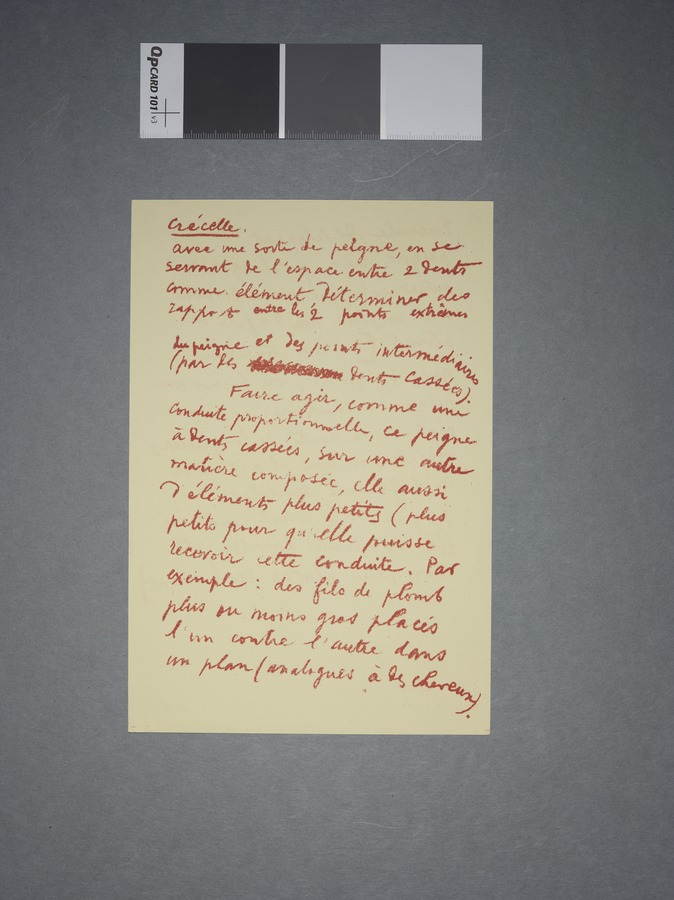 QPCARD 101 v3
Crécelle.
avec une sorte de peigne, en se
servant de l'espace entre 2 dents
comme élément, Déterminer des
rapports entre les 2 points extrêmes
du peigne et des points intermédiaires
(par les dents cassées).
Faire agir, comme une
conduite proportionnelle, ce peigne
à dents cassées, sur une autre
matière composée, elle aussi
d'éléments plus petits (plus
petits pour qu'elle puisse
recevoir cette conduite. Par
exemple : des fils de plomb
plus ou moins gros placés
l'un contre l'autre dans
un plan (analogues à des cheveux).